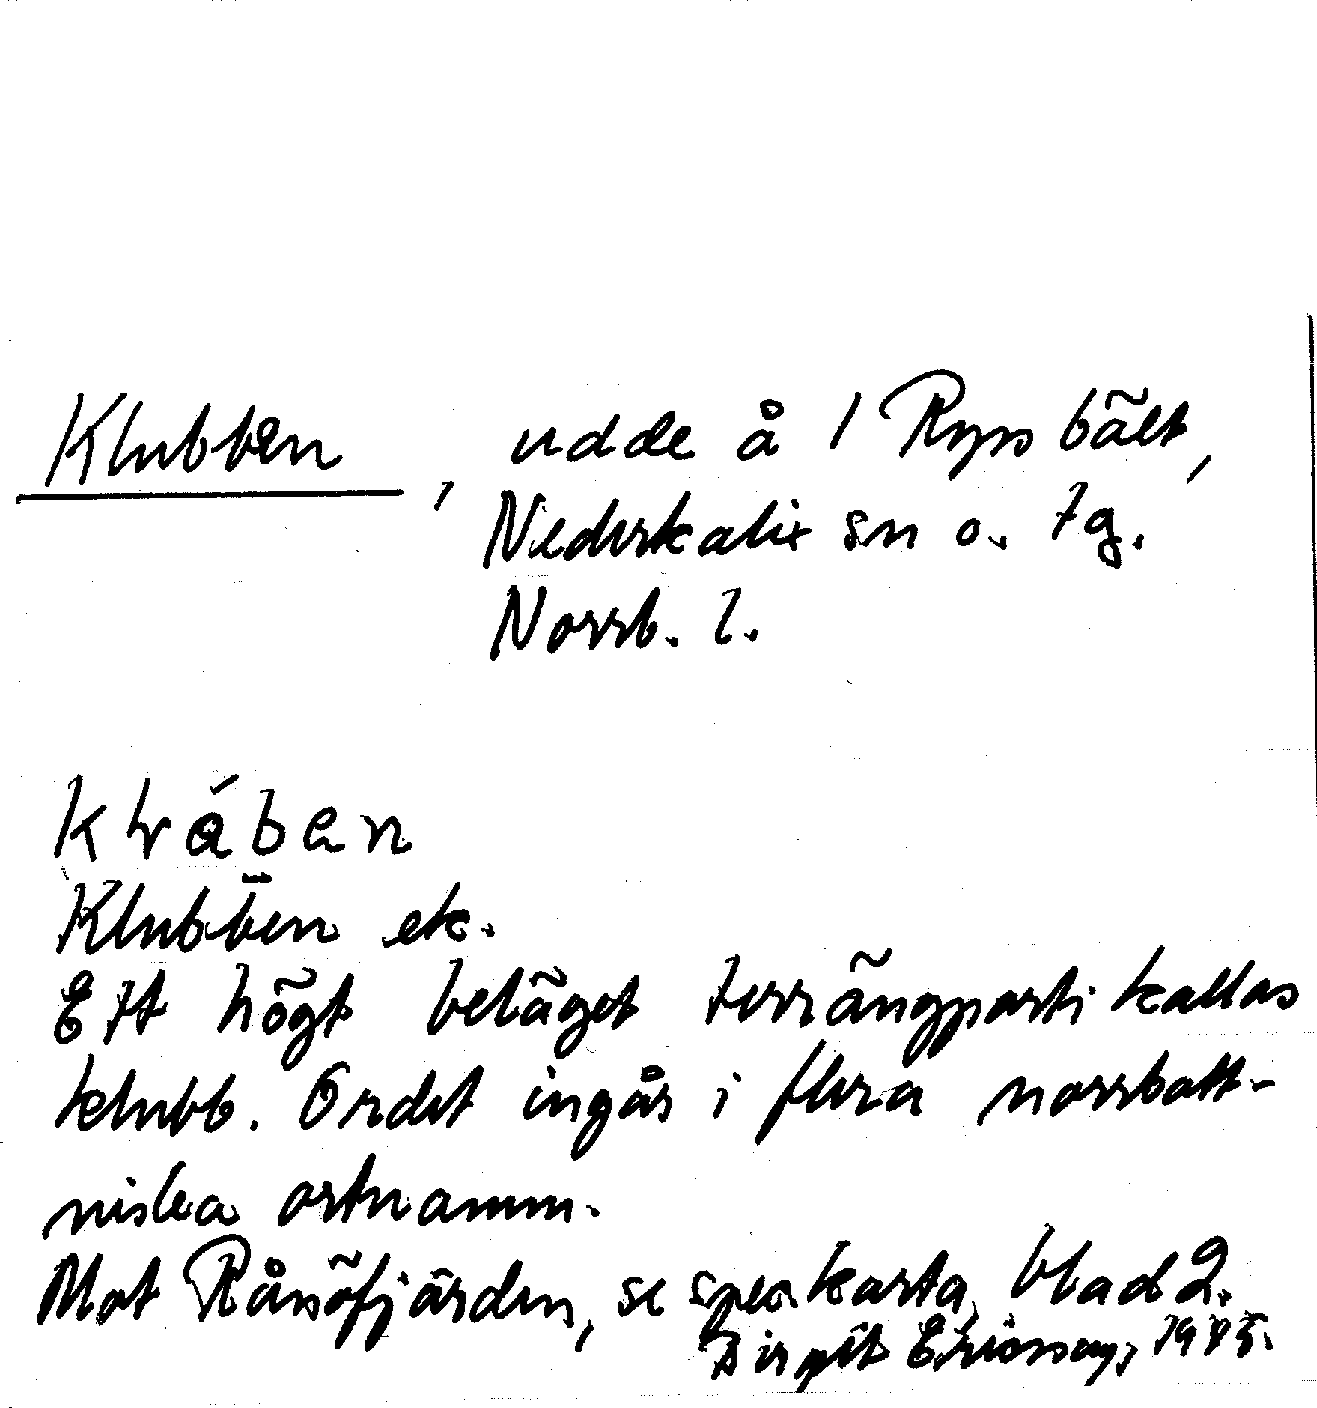 Klubben, udde å 1 Ryssbält,
Nederkalix sn o. tg.
Norrb. l.
Klubben ek.
Ett högt beläget terrängparti kallas
klubb. Ordet ingår i flera norrbott-
niska ortnamn.
Mot Rånöfjärden, se spec. karta, blad 2.
Birgit Ericson, 1985.